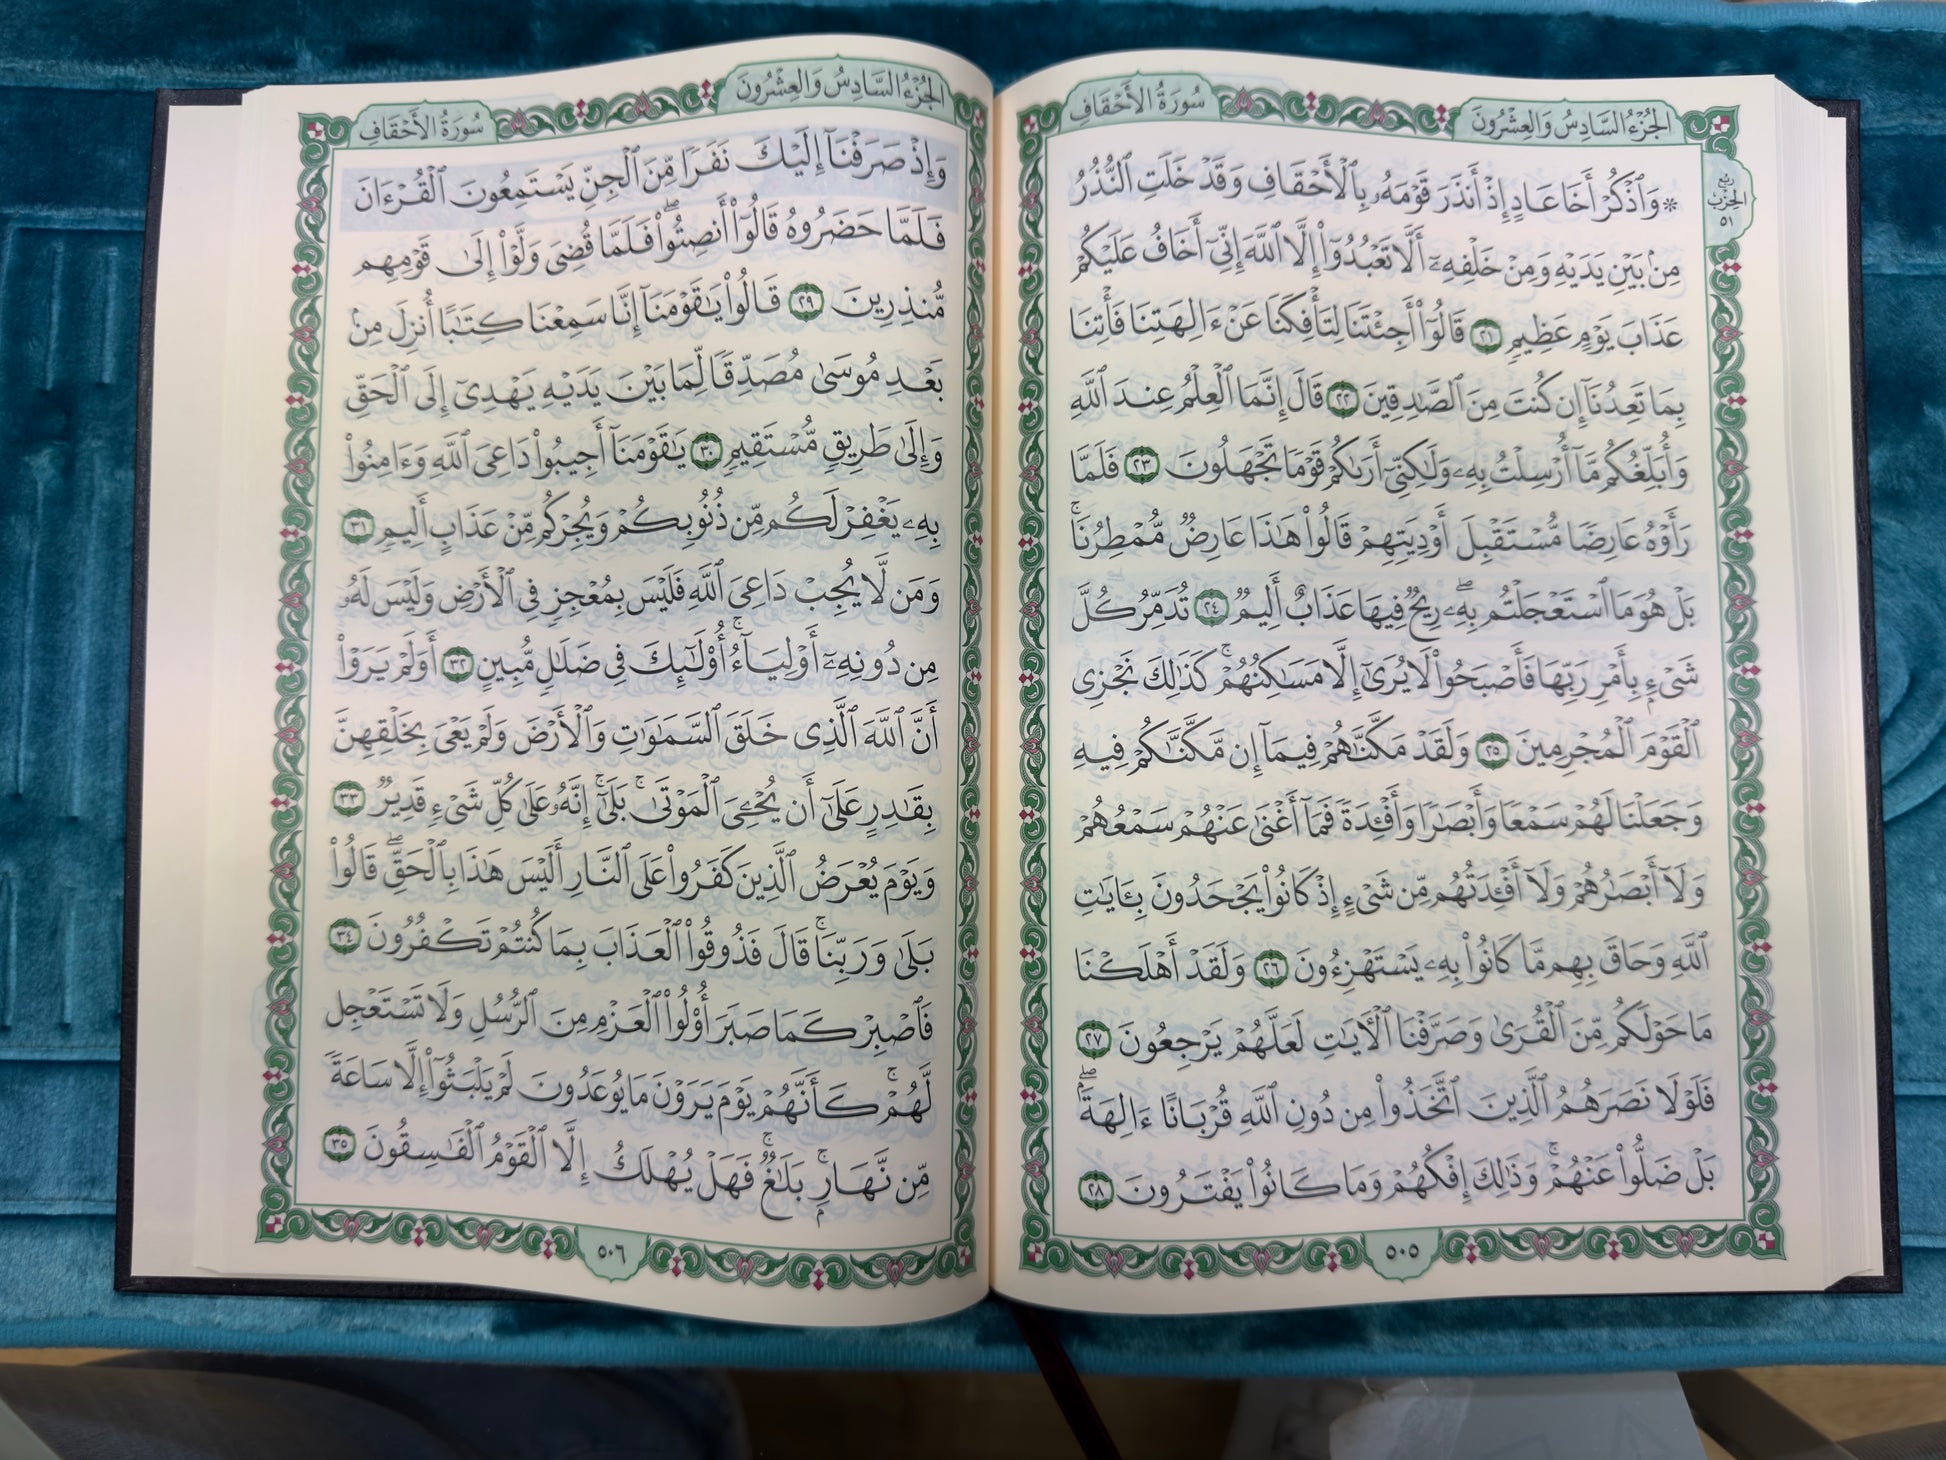 الجُزْءُ السَّادِسُ وَالعِشْرُونَ
سُورَةُ الأَحْقَافِ
رُبع
الحِزْب
٥١
۞ وَٱذْكُرْ أَخَا عَادٍ إِذْ أَنذَرَ قَوْمَهُۥ بِٱلْأَحْقَافِ وَقَدْ خَلَتِ ٱلنُّذُرُ
مِنۢ بَيْنِ يَدَيْهِ وَمِنْ خَلْفِهِۦٓ أَلَّا تَعْبُدُوٓا۟ إِلَّا ٱللَّهَ إِنِّىٓ أَخَافُ عَلَيْكُمْ
عَذَابَ يَوْمٍ عَظِيمٍ ٢١ قَالُوٓا۟ أَجِئْتَنَا لِتَأْفِكَنَا عَنْ ءَالِهَتِنَا فَأْتِنَا
بِمَا تَعِدُنَآ إِن كُنتَ مِنَ ٱلصَّـٰدِقِينَ ٢٢ قَالَ إِنَّمَا ٱلْعِلْمُ عِندَ ٱللَّهِ
وَأُبَلِّغُكُم مَّآ أُرْسِلْتُ بِهِۦ وَلَـٰكِنِّىٓ أَرَىٰكُمْ قَوْمًا تَجْهَلُونَ ٢٣ فَلَمَّا
رَأَوْهُ عَارِضًا مُّسْتَقْبِلَ أَوْدِيَتِهِمْ قَالُوا۟ هَـٰذَا عَارِضٌ مُّمْطِرُنَا ۚ
بَلْ هُوَ مَا ٱسْتَعْجَلْتُم بِهِۦ ۖ رِيحٌ فِيهَا عَذَابٌ أَلِيمٌ ٢٤ تُدَمِّرُ كُلَّ
شَىْءٍۭ بِأَمْرِ رَبِّهَا فَأَصْبَحُوا۟ لَا يُرَىٰٓ إِلَّا مَسَـٰكِنُهُمْ ۚ كَذَٰلِكَ نَجْزِى
ٱلْقَوْمَ ٱلْمُجْرِمِينَ ٢٥ وَلَقَدْ مَكَّنَّـٰهُمْ فِيمَآ إِن مَّكَّنَّـٰكُمْ فِيهِ
وَجَعَلْنَا لَهُمْ سَمْعًا وَأَبْصَـٰرًا وَأَفْـِٔدَةً فَمَآ أَغْنَىٰ عَنْهُمْ سَمْعُهُمْ
وَلَآ أَبْصَـٰرُهُمْ وَلَآ أَفْـِٔدَتُهُم مِّن شَىْءٍ إِذْ كَانُوا۟ يَجْحَدُونَ بِـَٔايَـٰتِ
ٱللَّهِ وَحَاقَ بِهِم مَّا كَانُوا۟ بِهِۦ يَسْتَهْزِءُونَ ٢٦ وَلَقَدْ أَهْلَكْنَا
مَا حَوْلَكُم مِّنَ ٱلْقُرَىٰ وَصَرَّفْنَا ٱلْـَٔايَـٰتِ لَعَلَّهُمْ يَرْجِعُونَ ٢٧
فَلَوْلَا نَصَرَهُمُ ٱلَّذِينَ ٱتَّخَذُوا۟ مِن دُونِ ٱللَّهِ قُرْبَانًا ءَالِهَةًۢ ۖ
بَلْ ضَلُّوا۟ عَنْهُمْ ۚ وَذَٰلِكَ إِفْكُهُمْ وَمَا كَانُوا۟ يَفْتَرُونَ ٢٨
٥٠٥
الجُزْءُ السَّادِسُ وَالعِشْرُونَ
سُورَةُ الأَحْقَافِ
وَإِذْ صَرَفْنَآ إِلَيْكَ نَفَرًا مِّنَ ٱلْجِنِّ يَسْتَمِعُونَ ٱلْقُرْءَانَ
فَلَمَّا حَضَرُوهُ قَالُوٓا۟ أَنصِتُوا۟ ۖ فَلَمَّا قُضِىَ وَلَّوْا۟ إِلَىٰ قَوْمِهِم
مُّنذِرِينَ ٢٩ قَالُوا۟ يَـٰقَوْمَنَآ إِنَّا سَمِعْنَا كِتَـٰبًا أُنزِلَ مِنۢ
بَعْدِ مُوسَىٰ مُصَدِّقًا لِّمَا بَيْنَ يَدَيْهِ يَهْدِىٓ إِلَى ٱلْحَقِّ
وَإِلَىٰ طَرِيقٍ مُّسْتَقِيمٍ ٣٠ يَـٰقَوْمَنَآ أَجِيبُوا۟ دَاعِىَ ٱللَّهِ وَءَامِنُوا۟
بِهِۦ يَغْفِرْ لَكُم مِّن ذُنُوبِكُمْ وَيُجِرْكُم مِّنْ عَذَابٍ أَلِيمٍ ٣١
وَمَن لَّا يُجِبْ دَاعِىَ ٱللَّهِ فَلَيْسَ بِمُعْجِزٍ فِى ٱلْأَرْضِ وَلَيْسَ لَهُۥ
مِن دُونِهِۦٓ أَوْلِيَآءُ ۚ أُو۟لَـٰٓئِكَ فِى ضَلَـٰلٍ مُّبِينٍ ٣٢ أَوَلَمْ يَرَوْا۟
أَنَّ ٱللَّهَ ٱلَّذِى خَلَقَ ٱلسَّمَـٰوَٰتِ وَٱلْأَرْضَ وَلَمْ يَعْىَ بِخَلْقِهِنَّ
بِقَـٰدِرٍ عَلَىٰٓ أَن يُحْـِۧىَ ٱلْمَوْتَىٰ ۚ بَلَىٰٓ ۚ إِنَّهُۥ عَلَىٰ كُلِّ شَىْءٍ قَدِيرٌ ٣٣
وَيَوْمَ يُعْرَضُ ٱلَّذِينَ كَفَرُوا۟ عَلَى ٱلنَّارِ أَلَيْسَ هَـٰذَا بِٱلْحَقِّ ۖ قَالُوا۟
بَلَىٰ وَرَبِّنَا ۚ قَالَ فَذُوقُوا۟ ٱلْعَذَابَ بِمَا كُنتُمْ تَكْفُرُونَ ٣٤
فَٱصْبِرْ كَمَا صَبَرَ أُو۟لُوا۟ ٱلْعَزْمِ مِنَ ٱلرُّسُلِ وَلَا تَسْتَعْجِل
لَّهُمْ ۚ كَأَنَّهُمْ يَوْمَ يَرَوْنَ مَا يُوعَدُونَ لَمْ يَلْبَثُوٓا۟ إِلَّا سَاعَةً
مِّن نَّهَارٍۭ ۚ بَلَـٰغٌ ۚ فَهَلْ يُهْلَكُ إِلَّا ٱلْقَوْمُ ٱلْفَـٰسِقُونَ ٣٥
٥٠٦